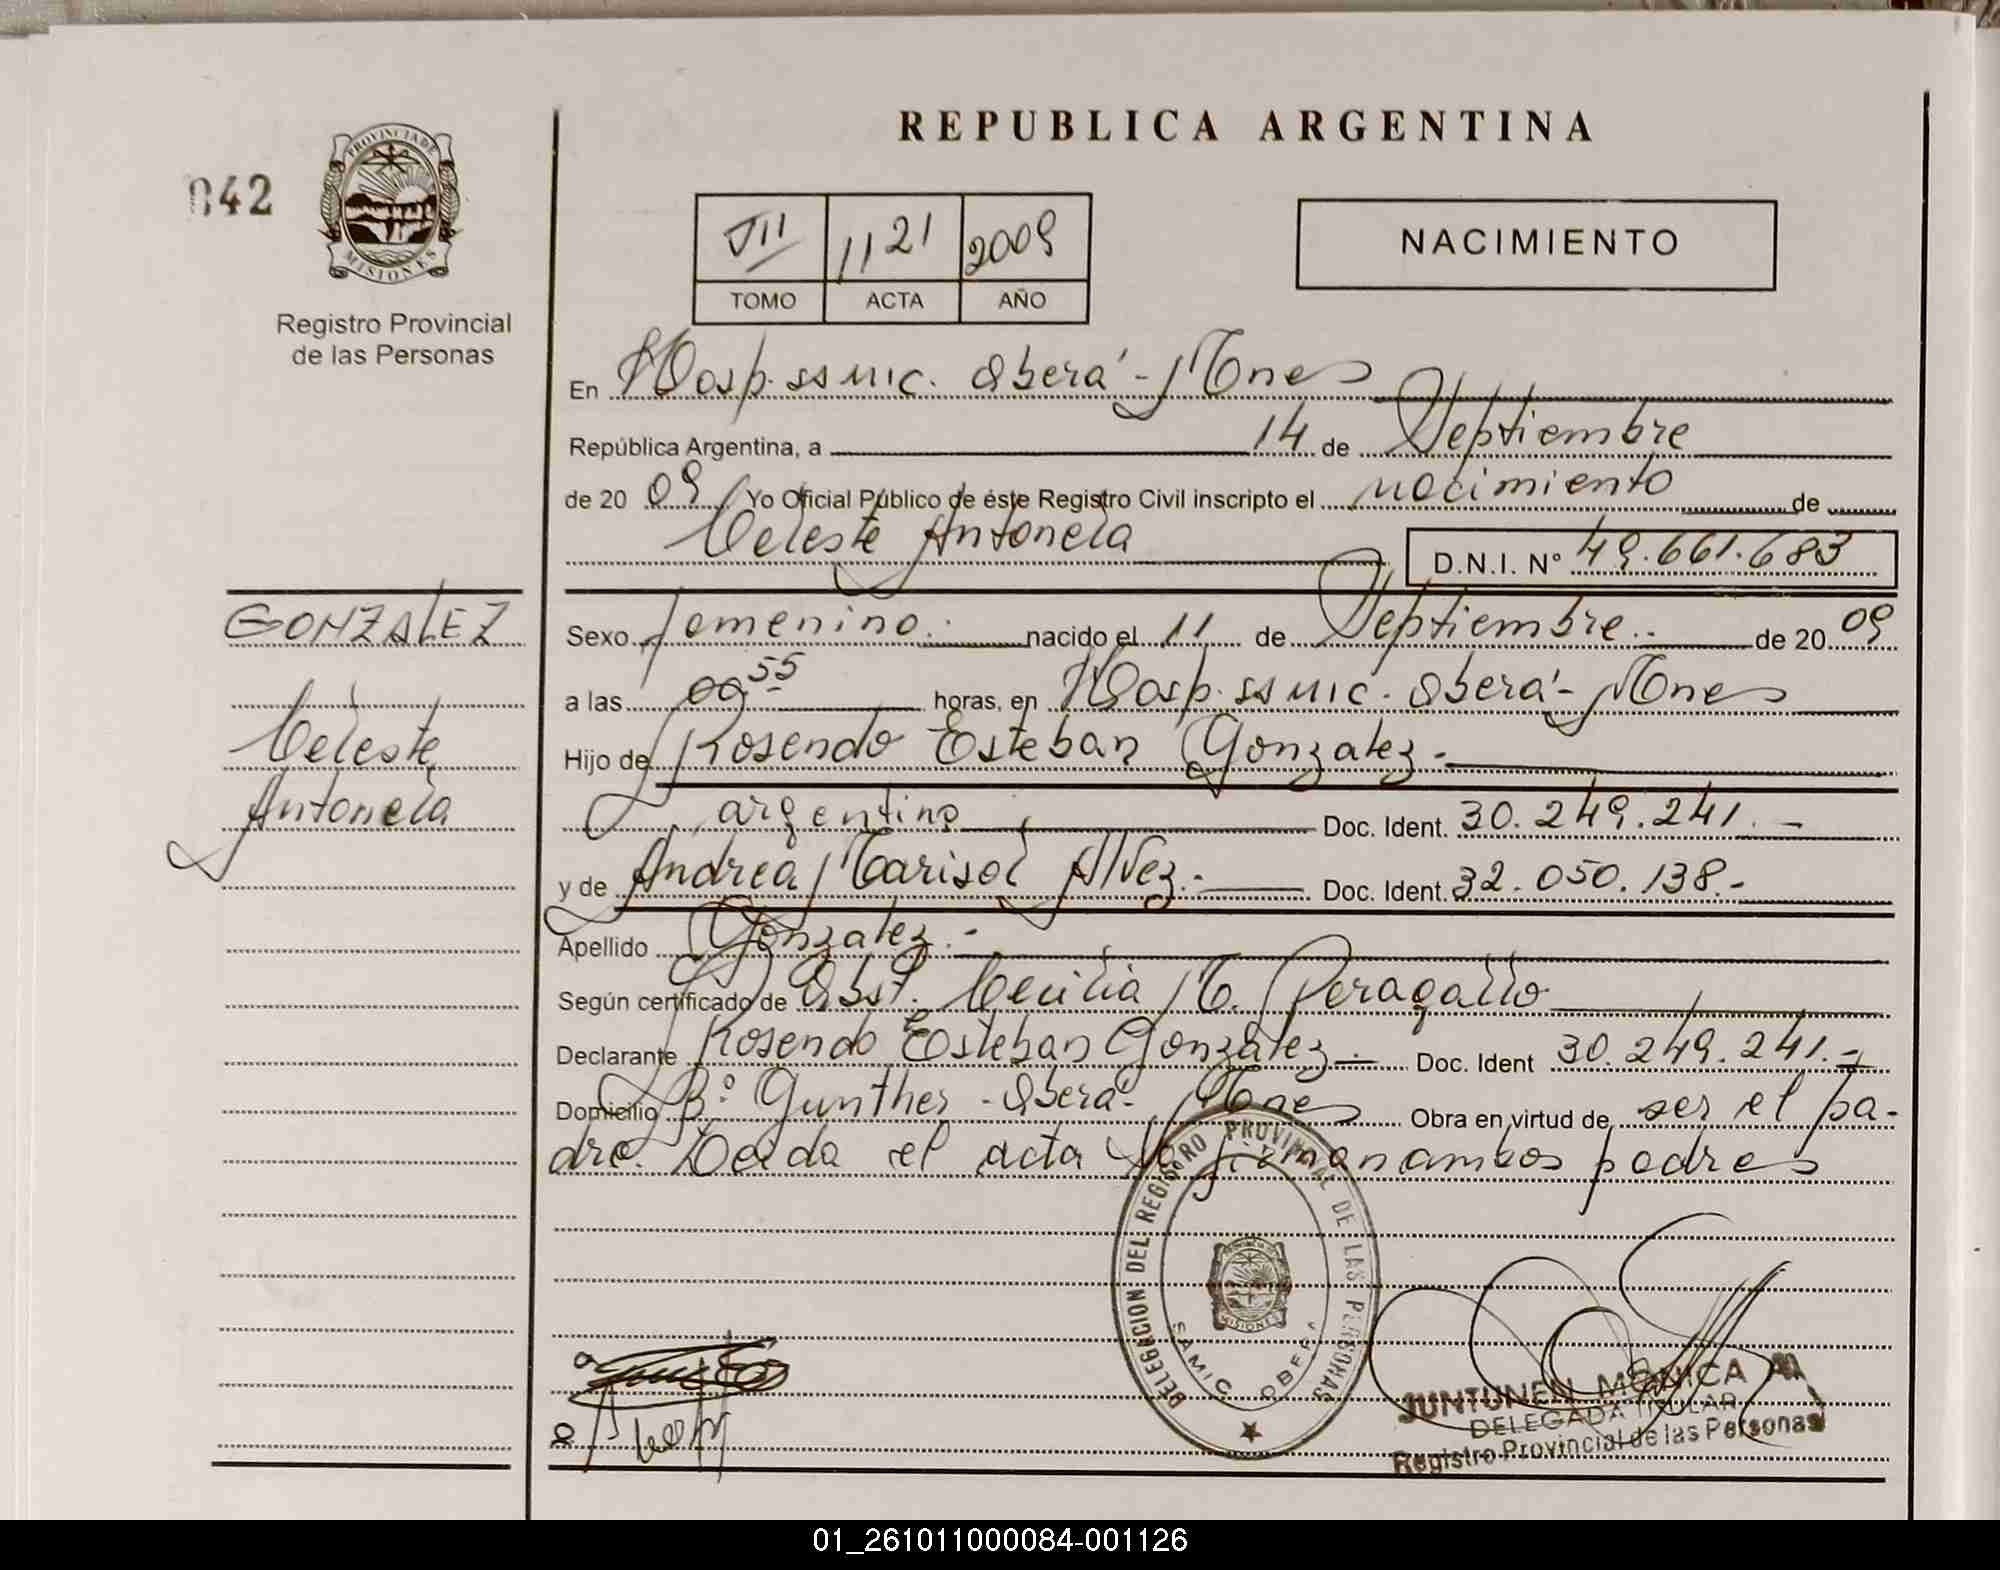 REPUBLICA ARGENTINA
042
PROVINCIA DE
MISIONES
Registro Provincial
de las Personas
VII 1121 2009
TOMO ACTA AÑO
NACIMIENTO
En Hosp. ssmic. Oberá - Mnes
República Argentina, a 14 de Septiembre
de 20 09 Yo Oficial Público de éste Registro Civil inscripto el nacimiento de
Celeste Antonela D.N.I. Nº 49.661.683
GONZALEZ
Celeste
Antonela
Sexo femenino. nacido el 11 de Septiembre de 20 09
a las 09 55 horas, en Hosp. ssmic. Oberá - Mnes
Hijo de Rosendo Esteban Gonzalez.-
argentino Doc. Ident. 30.249.241.-
y de Andrea Marisol Alvez.- Doc. Ident. 32.050.138.-
Apellido Gonzalez.-
Según certificado de Obst. Cecilia M. Peragallo
Declarante Rosendo Esteban Gonzalez.- Doc. Ident 30.249.241.-
Domicilio Bº Gunther - Oberá - Mnes Obra en virtud de ser el pa-
dre. Leida el acta la firman ambos padres
DELEGACION DEL REGISTRO PROVINCIAL DE LAS PERSONAS
MISIONES
SAMIC OBERA
JUNTUNEN MONICA
DELEGADA TITULAR
Registro Provincial de las Personas
01_261011000084-001126